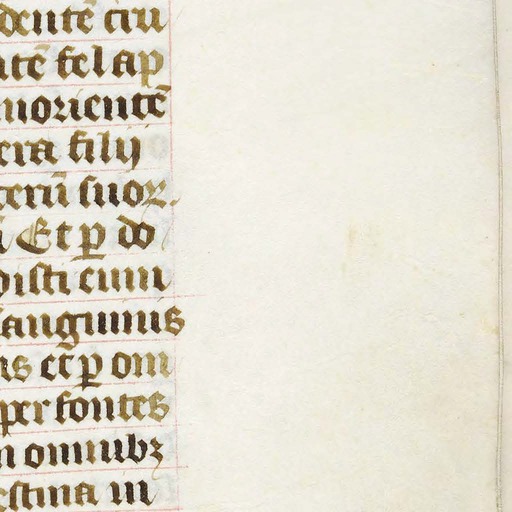 dentē cru
tē fel ap
morientē
era filij
terū suoꝝ.
Et ꝑ do
disti cum
sanguinis
us et ꝑ om
per fontes
n omnibꝫ
estina in